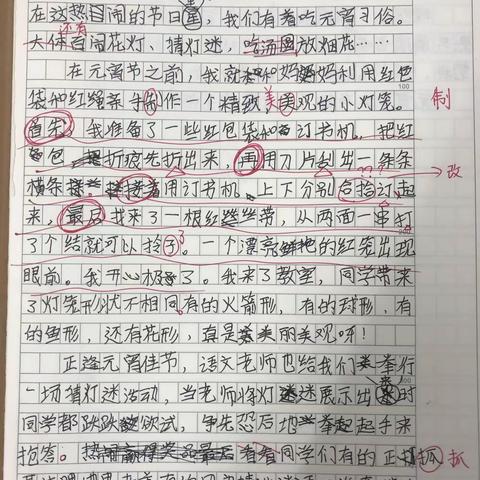 在这热闹的节日里，我们有着吃元宵习俗。
还有
大体百闹花灯、猜灯迷，吃汤圆放烟花……
在元宵节之前，我就和妈妈利用红包
袋和红绳亲手制作一个精致，美观的小灯笼。
美
制
首先，我准备了一些红包袋和订书机。把红
包折痕先折出来，再用刀片划出一条条
改
横条，接着用订书机，上下分别合拾订起
来，最后找来了一根红丝带，从两面一串打
了个结就可以拎了。一个漂亮的红笼出现
眼前。我开心极了。我来了教室，同学带来
了灯笼形状不相同有的火箭形，有的球形，有
的鱼形，还有花形，真是美丽美观呀！
正逢元宵佳节，语文老师也给我们举行
一场猜灯迷活动，当老师将灯迷展示出来时
同学都跃跃欲试，争先忍后地举起手来
抢答。同学们有的正抓
抓